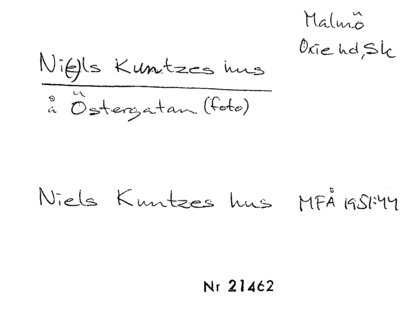 Malmö
Oxie hd, Sk
Ni(e)ls Kuntzes hus
å Östergatan (foto)
Niels Kuntzes hus MFÅ 1951:44
Nr 21462